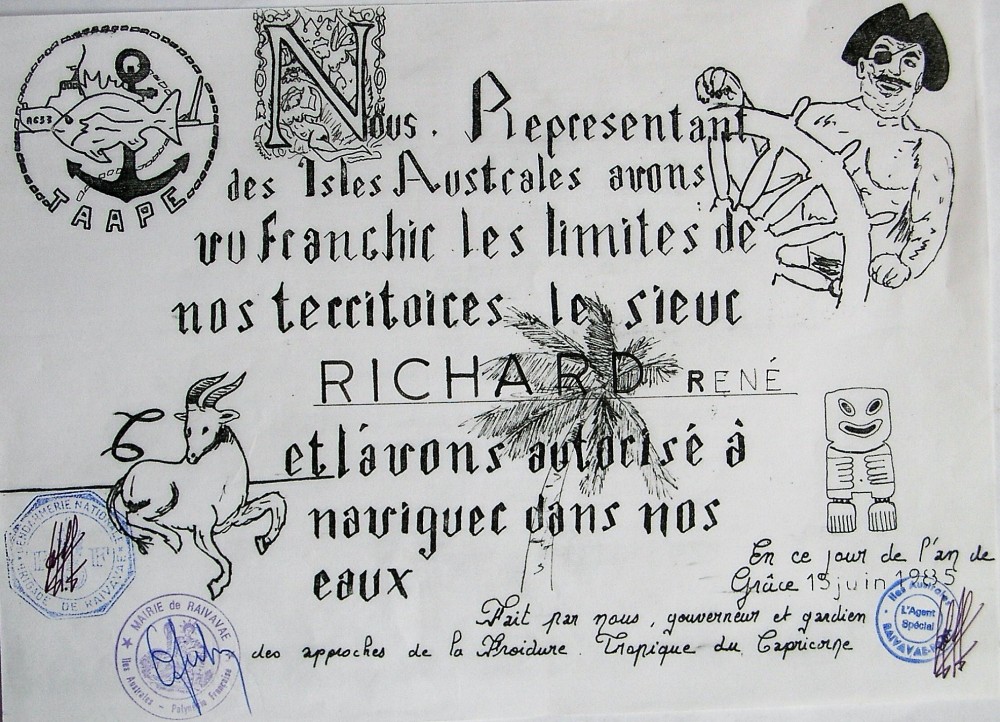 A633
TAAPE
Nous. Representant
des Isles Australes avons
vu franchir les limites de
nos territoires le sieur
RICHARD RENÉ
et l'avons autorisé à
naviguer dans nos
eaux
En ce jour de l'an de
Grâce 19 juin 1985
Fait par nous, gouverneur et gardien
des approches de la Froidure. Tropique du Capricorne
GENDARMERIE NATIONALE
BRIGADE DE RAIVAVAE
MAIRIE de RAIVAVAE
Iles Australes - Polynésie Française
Iles Australes
L'Agent
Spécial
RAIVAVAE